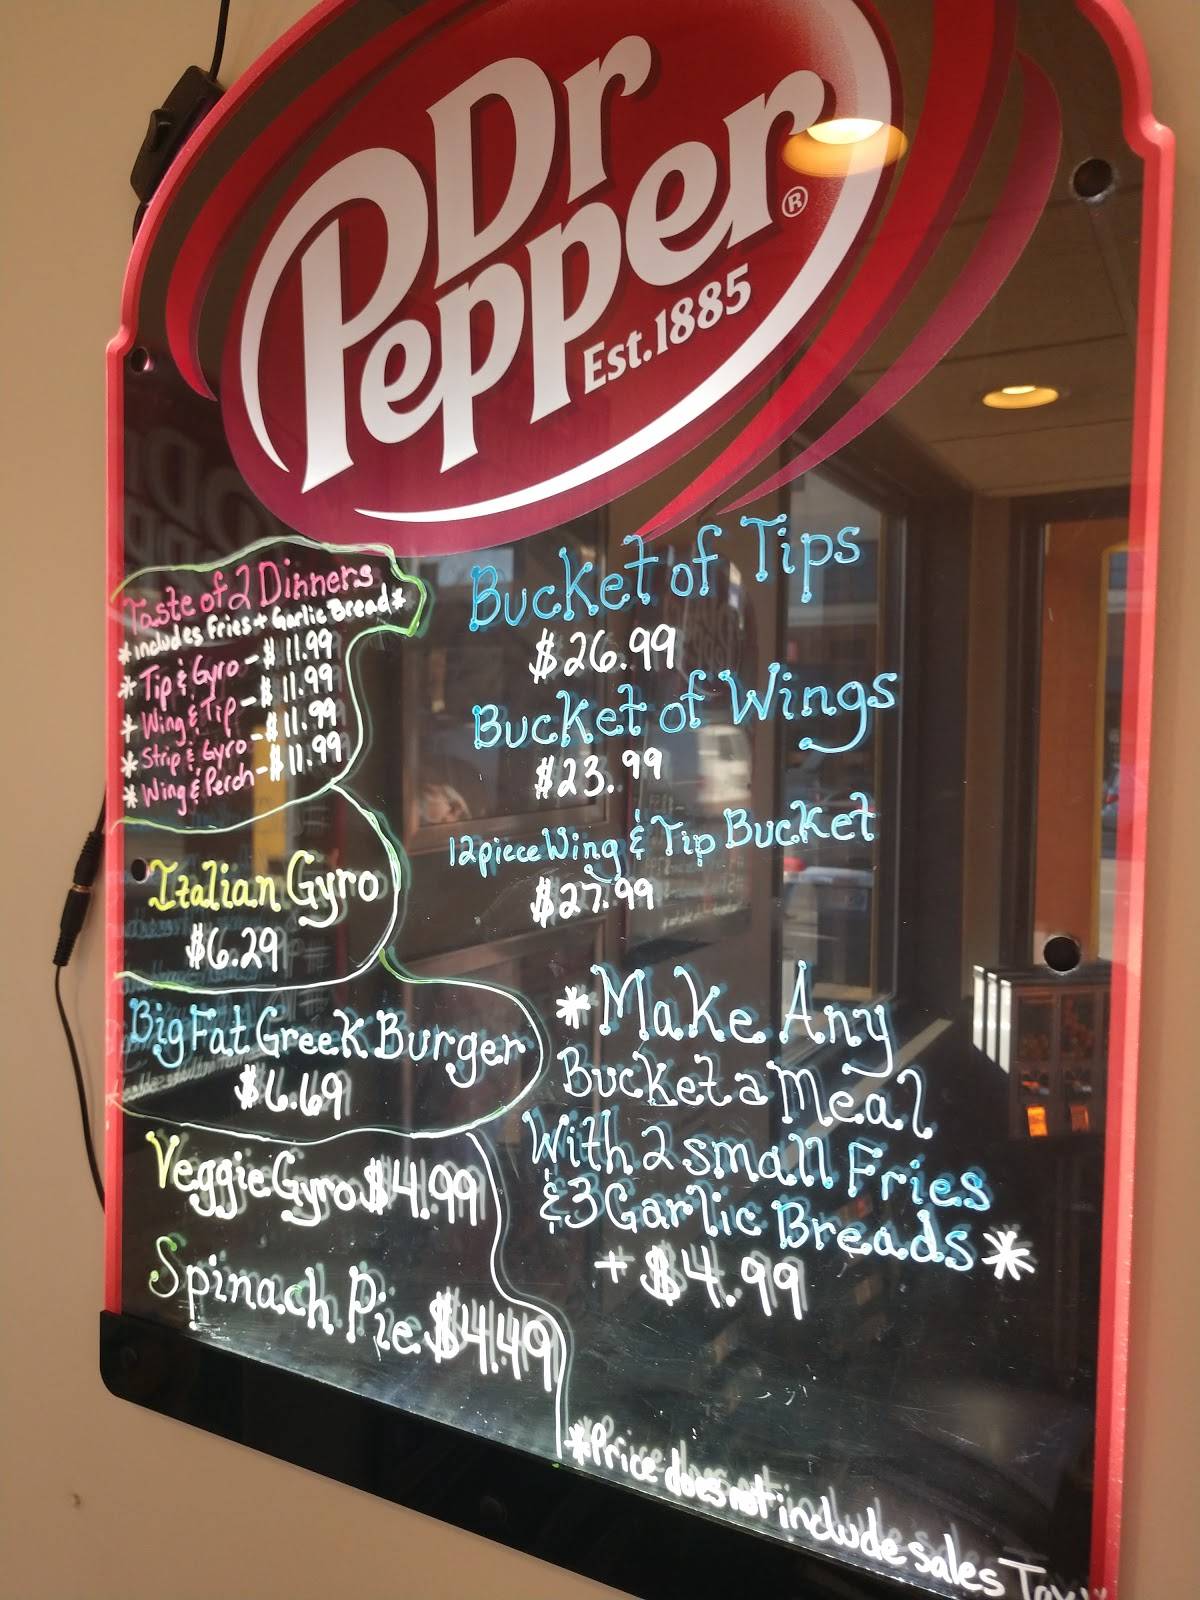 Dr
Pepper
®
Est.1885
Taste of 2 Dinners
*includes Fries + Garlic Bread*
* Tip & Gyro - $ 11.99
* Wing & Tip - $ 11.99
* Strip & Gyro - $ 11.99
* Wing & Perch - $ 11.99
Italian Gyro
$6.29
Big Fat Greek Burger
$6.69
Veggie Gyro $4.99
Spinach Pie $4.49
Bucket of Tips
$26.99
Bucket of Wings
$23.99
12 piece Wing & Tip Bucket
$27.99
*Make Any
Bucket a Meal
With 2 small Fries
& 3 Garlic Breads*
+ $4.99
*Price does not include sales Tax*